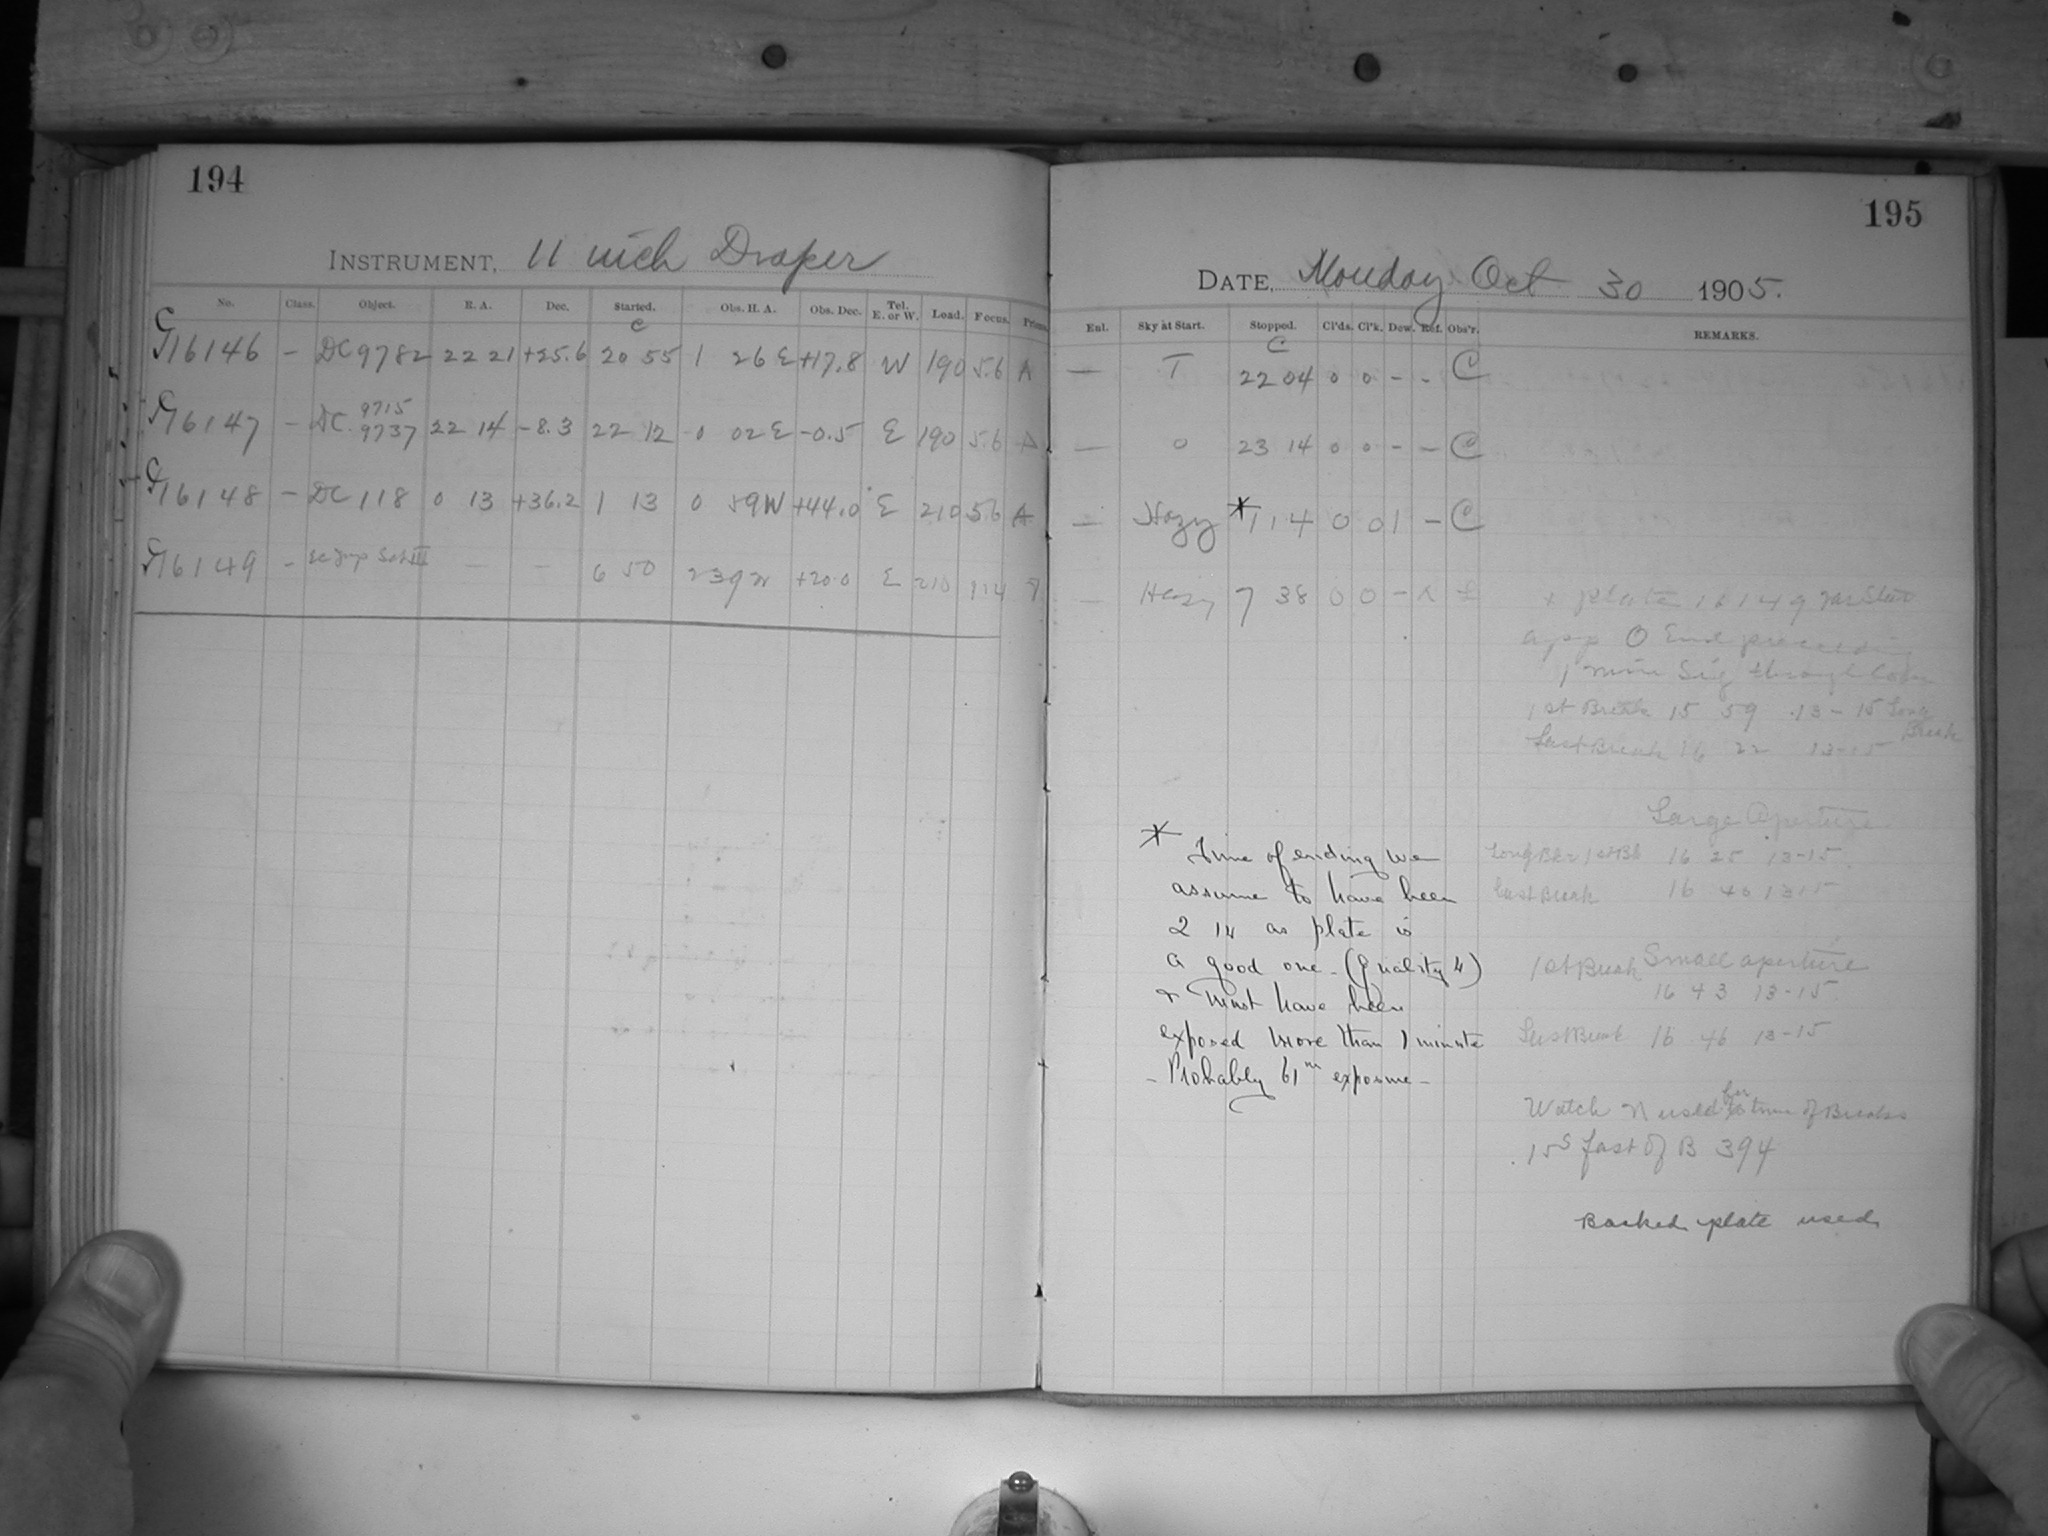 194
INSTRUMENT, 11 inch Draper
No. Class. Object. R. A. Dec. Started. Obs. H. A. Obs. Dec. Tel. E. or W. Load. Focus. Prism.
C
16146 – DC 9782 22 21 +25.6 20 55 1 26 E +17.8 W 190 5.6 A
16147 – DC 9715 9737 22 14 -8.3 22 12 0 02 E -0.5 E 190 5.6 A
16148 – DC 118 0 13 +36.2 1 13 0 59 W +44.0 E 210 5.6 A
16149 – — — 6 50 +20.0 E 210
195
DATE, Monday Oct 30 1905.
Enl. Sky at Start. Stopped. Cl'ds. Cl'k. Dew. Ref. Obs'r. REMARKS.
C
— T 22 04 0 0 - - C
— 0 23 14 0 0 - – C
— Hazy *1 14 0 0 1 – C
— Hazy 7 38 0 0 -
plate 16149
O End preceding
1 min Sig through
1st Break 15 59 13-15 Long Break
Last Break 16 22 13-15
Large Aperture
16 25 13-15
Last Break 16 40 13 15
Small aperture
1st Break
16 43 13-15
Last Break 16 46 13-15
Watch N used for time of Breaks
15s fast of B 394
Backed plate used
* Time of ending we
assume to have been
2 14 as plate is
a good one – (Quality 4)
& must have been
exposed more than 1 minute
– Probably 61m exposure –